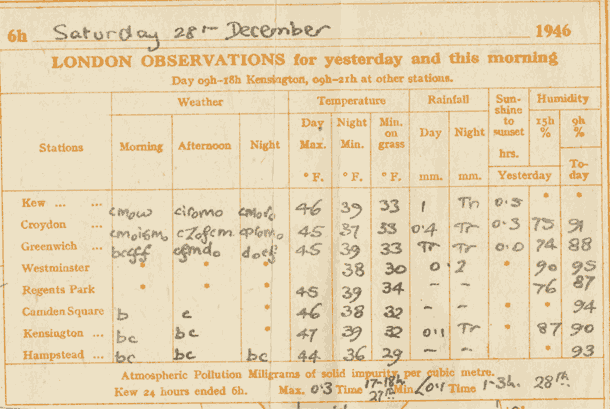 6h Saturday 28th December 1946
LONDON OBSERVATIONS for yesterday and this morning
Day 09h-18h Kensington, 09h-21h at other stations.
Stations Weather Temperature Rainfall Sunshine to sunset Humidity
Morning Afternoon Night Day Max. Night Min. Min. on grass Day Night hrs. 15h % 9h %
° F. ° F. ° F. mm. mm. Yesterday To-day
Kew ... ... 46 39 33 1 Tr 0.5 * *
Croydon ... 45 37 33 0.4 Tr 0.3 75 91
Greenwich ... 45 39 33 Tr Tr 0.0 74 88
Westminster * * * 38 30 0.2 * 90 95
Regents Park * * * 45 39 34 - - 76 87
Camden Square b c * 46 38 32 - - * * 94
Kensington ... bc bc * 47 39 32 0.1 Tr * 87 90
Hampstead ... bc bc bc 44 36 29 - - * 93
Atmospheric Pollution Miligrams of solid impurity, per cubic metro.
Kew 24 hours ended 6h. Max. 0.3 Time 17-18h. 27th Min. <0.1 Time 1-3h. 28th.